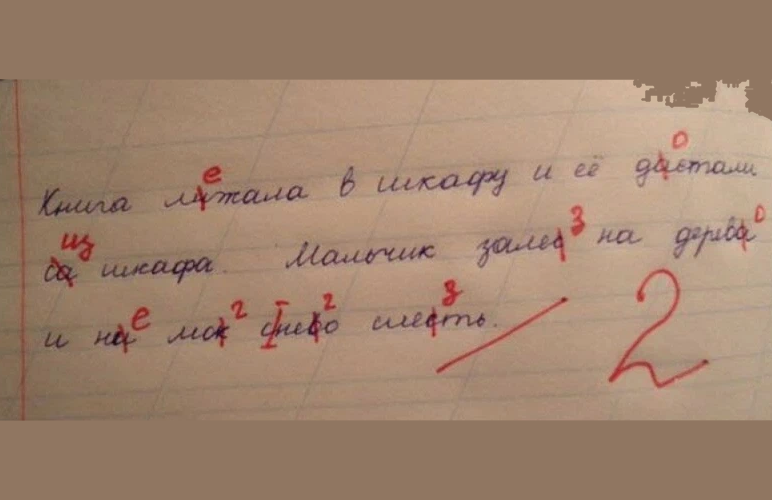 е о
Книга лижала в шкафу и её дастали
из з о
са шкафа. Мальчик залес на дерева
е г г з
и на мок снево слесть.
2